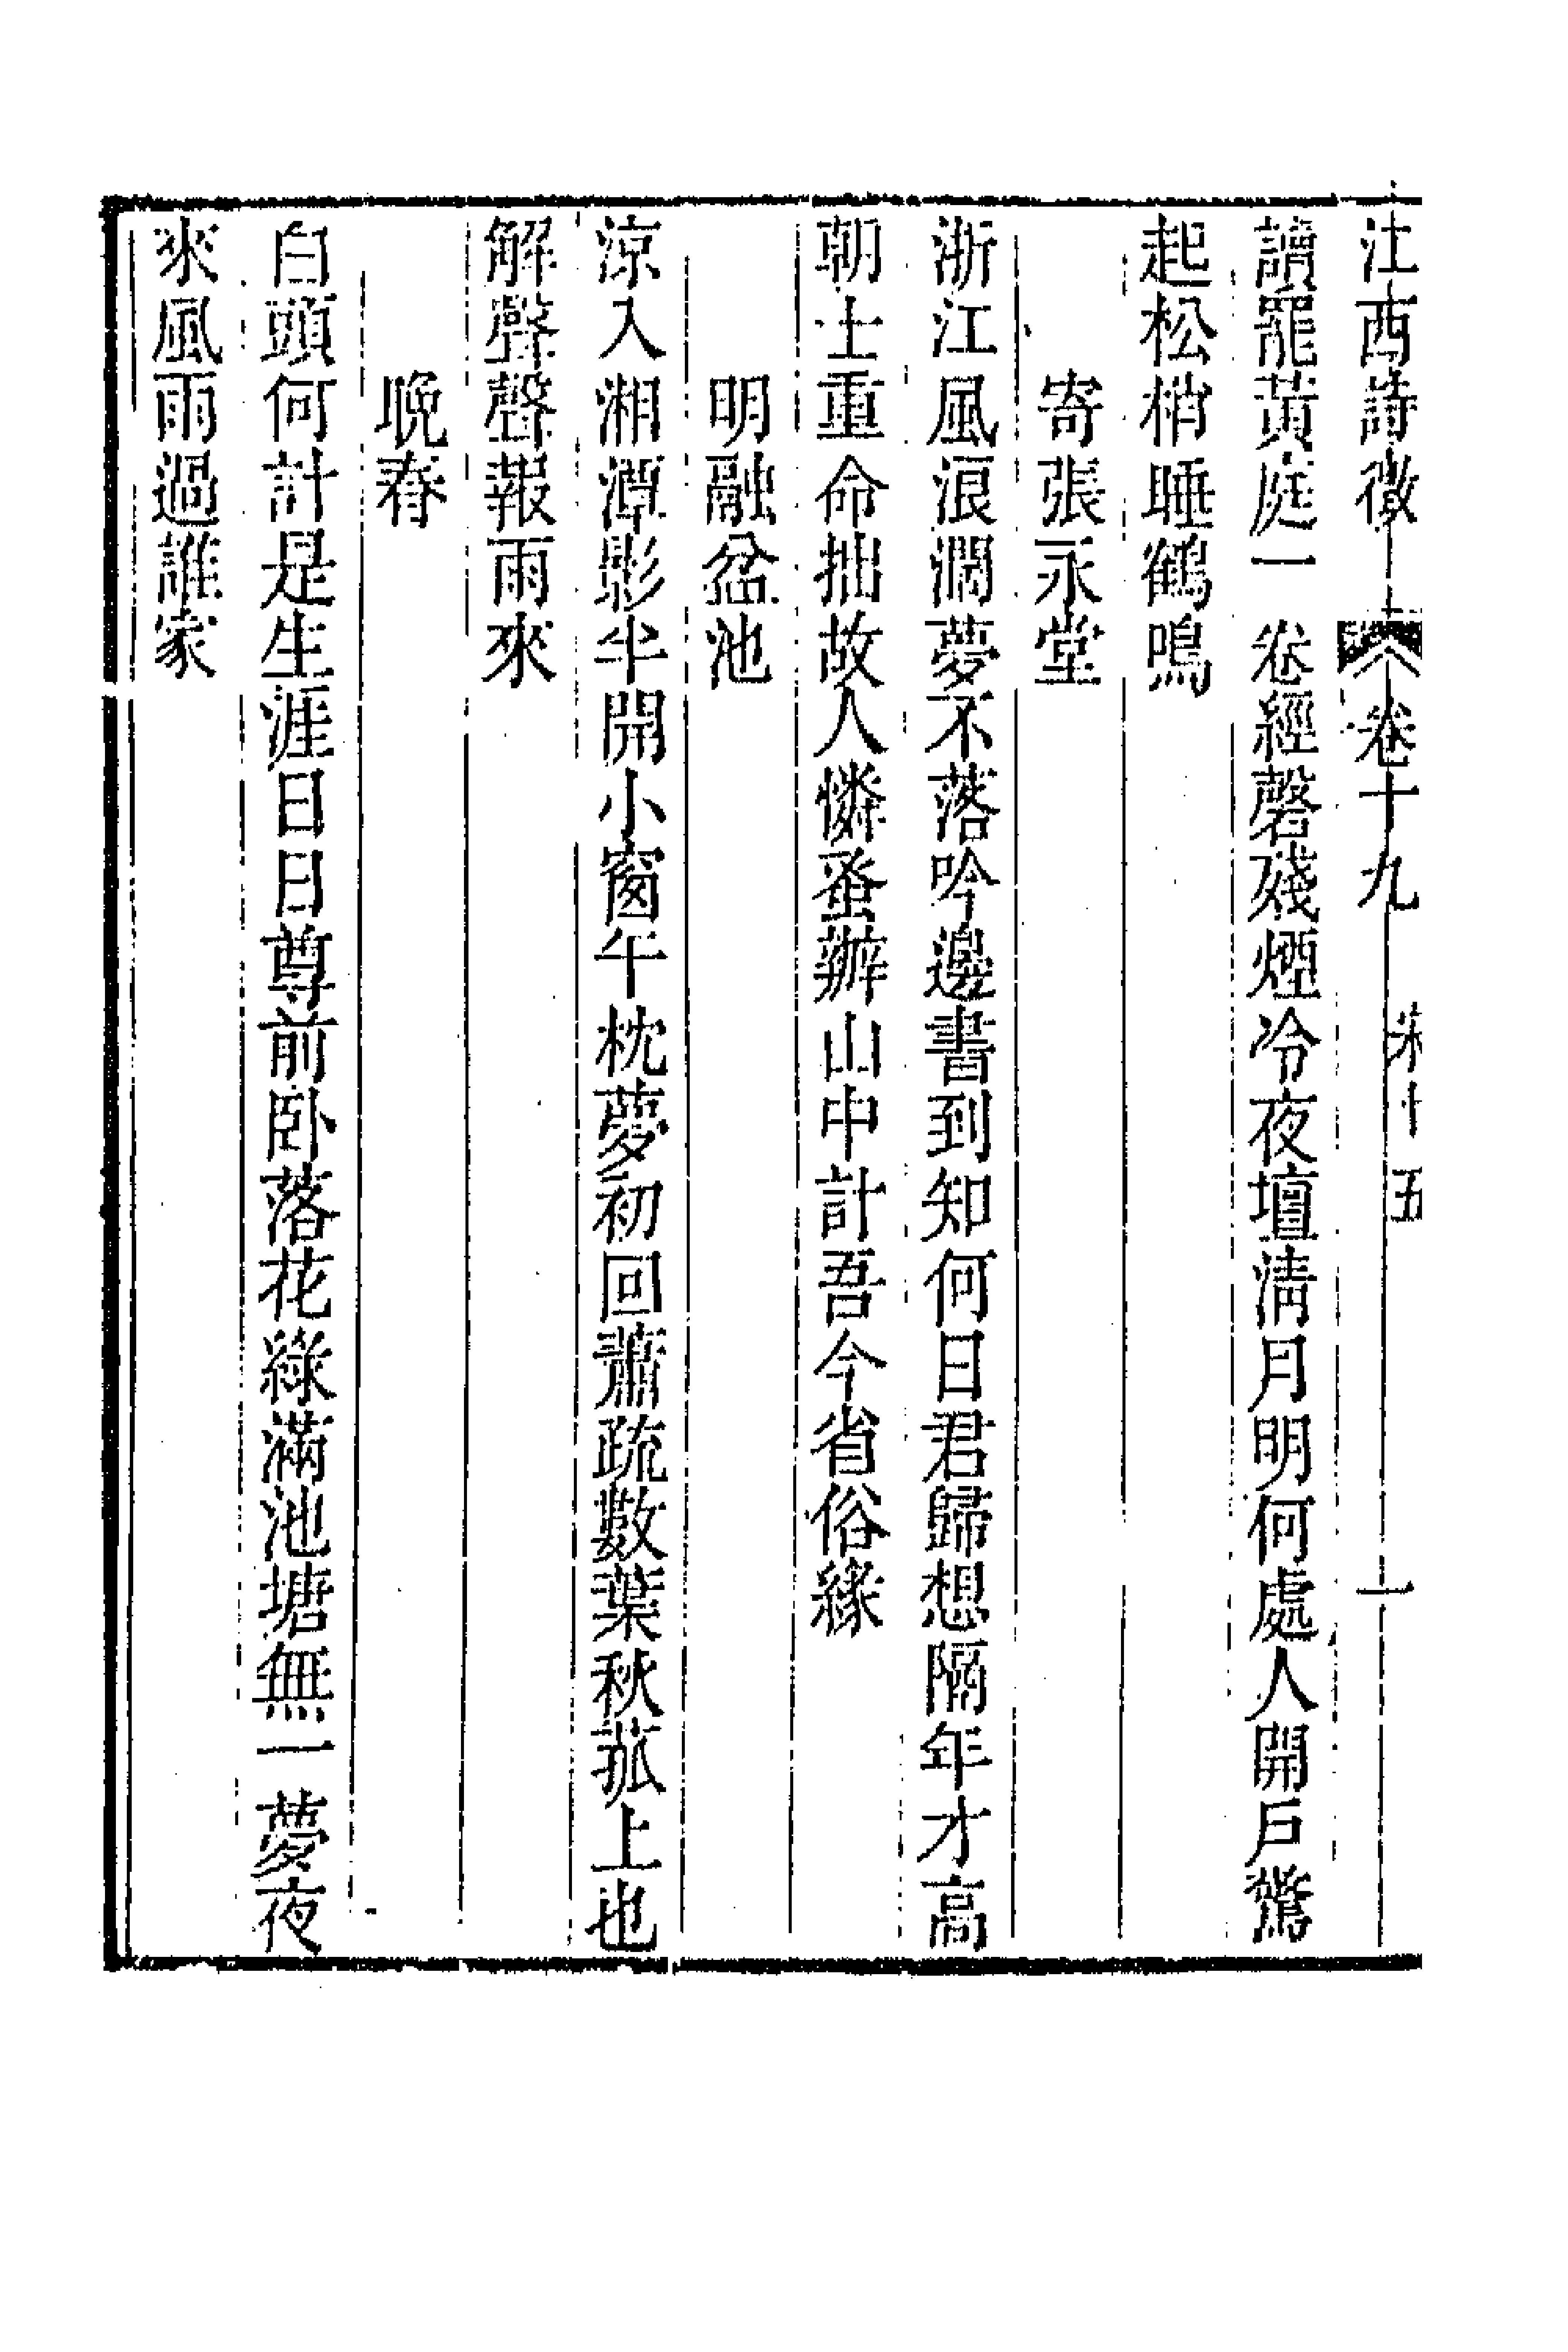 江西詩徵 卷十九 宋十五 一
讀罷黃庭一卷經磬殘煙冷夜壇淸月明何處人開戶驚
起松梢睡鶴鳴
寄張永堂
浙江風浪濶夢不落吟邊書到知何日君歸想隔年才高
朝士重命拙故人憐蚤辦山中計吾今省俗緣
明融盆池
涼入湘潭影半開小窗午枕夢初回蕭疏數葉秋菰上也
解聲聲報雨來
晚春
白頭何計是生涯日日尊前卧落花綠滿池塘無一夢夜
來風雨過誰家